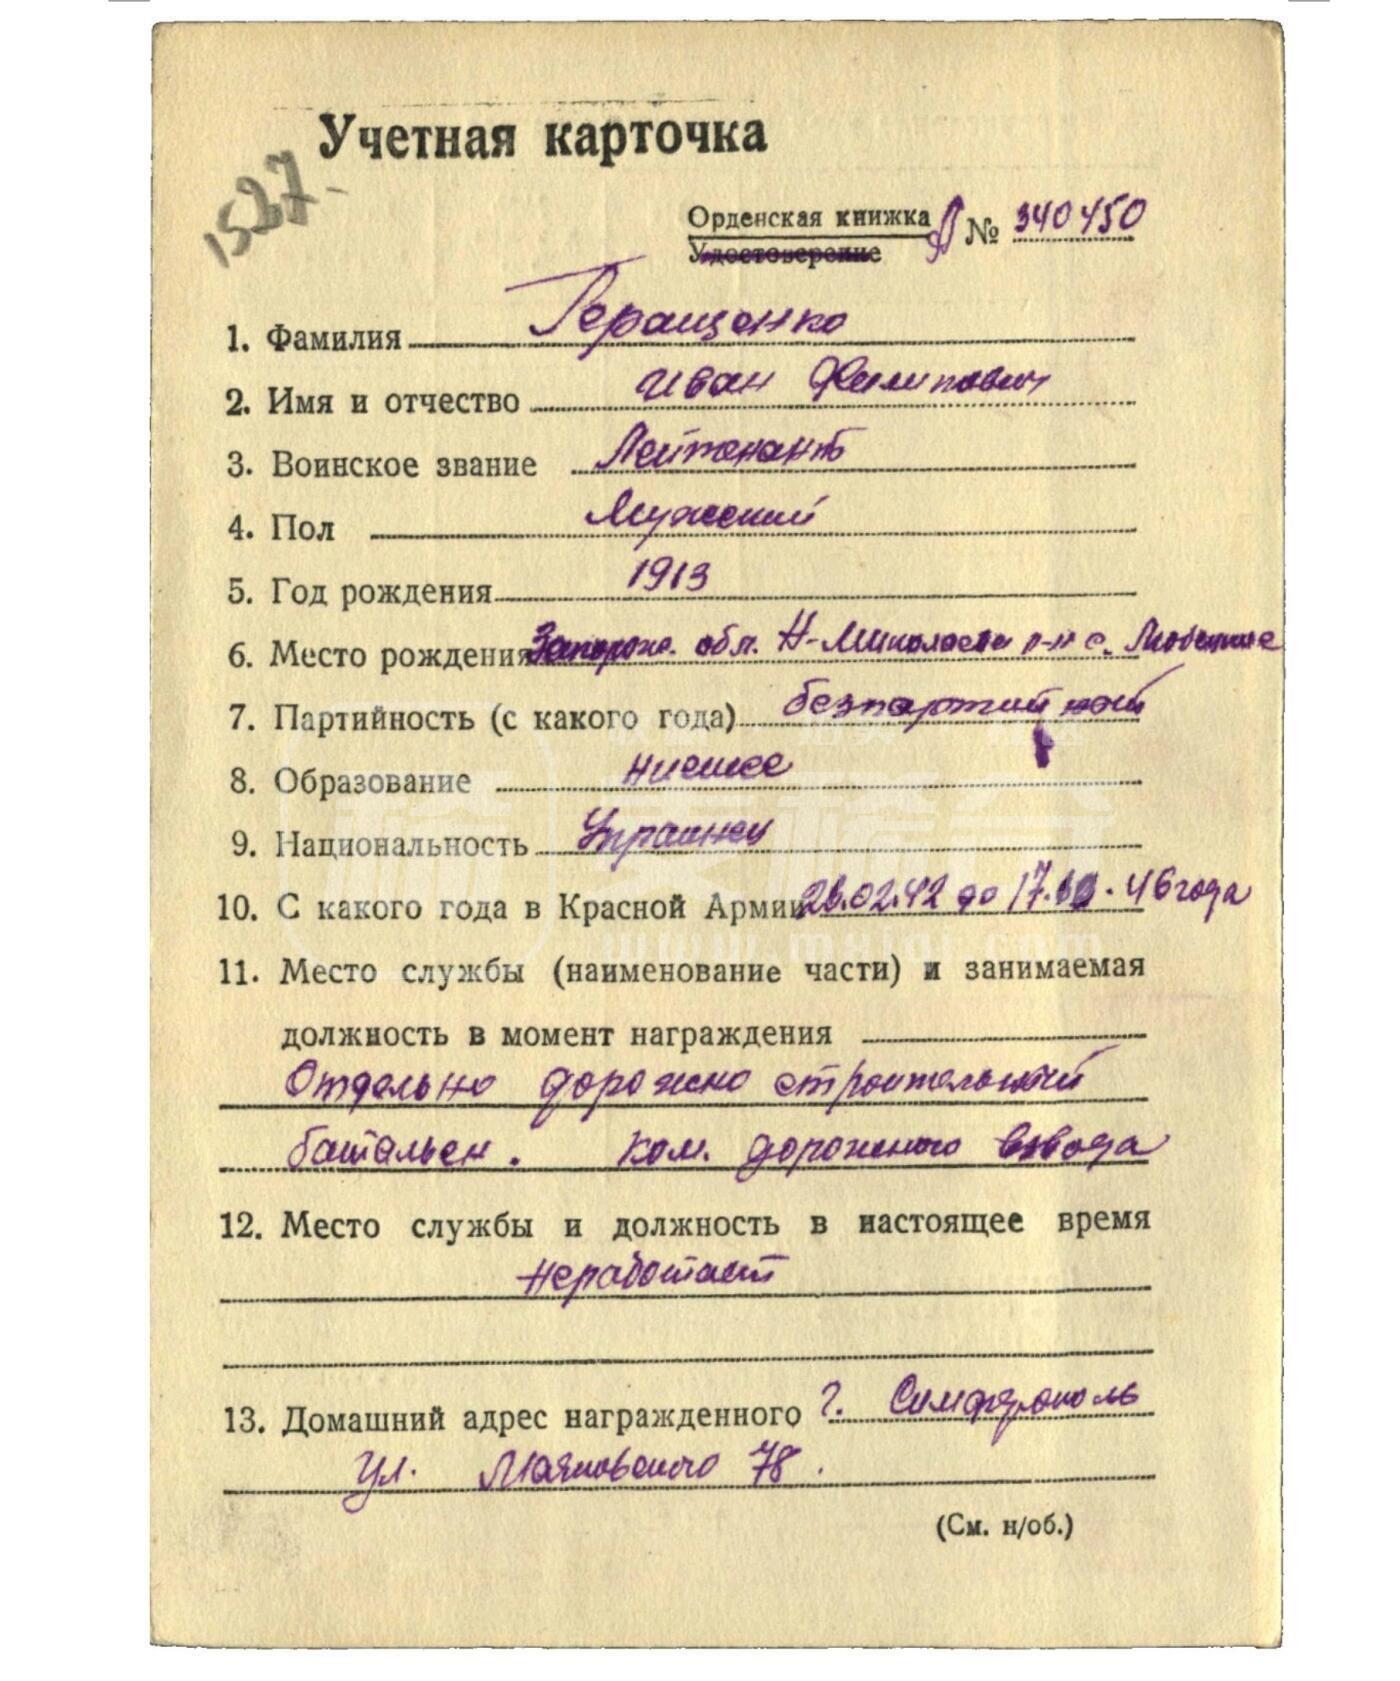 Учетная карточка
1527-
Орденская книжка А № 340450
Удостоверение
1. Фамилия Геращенко
2. Имя и отчество Иван Филипович
3. Воинское звание Лейтенант
4. Пол Мужский
5. Год рождения 1913
6. Место рождения Запорож. обл. Н-Миколаевск р-н с.
7. Партийность (с какого года) безпартийный
8. Образование нисшее
9. Национальность Украинец
10. С какого года в Красной Армии 26.02.42 до 17. 46 года
11. Место службы (наименование части) и занимаемая
должность в момент награждения
Отдельно дорожно строительный
батальен. Ком. дорожного взвода
12. Место службы и должность в настоящее время
неработает
13. Домашний адрес награжденного г. Симферополь
ул. Маяковского 78.
(См. н/об.)